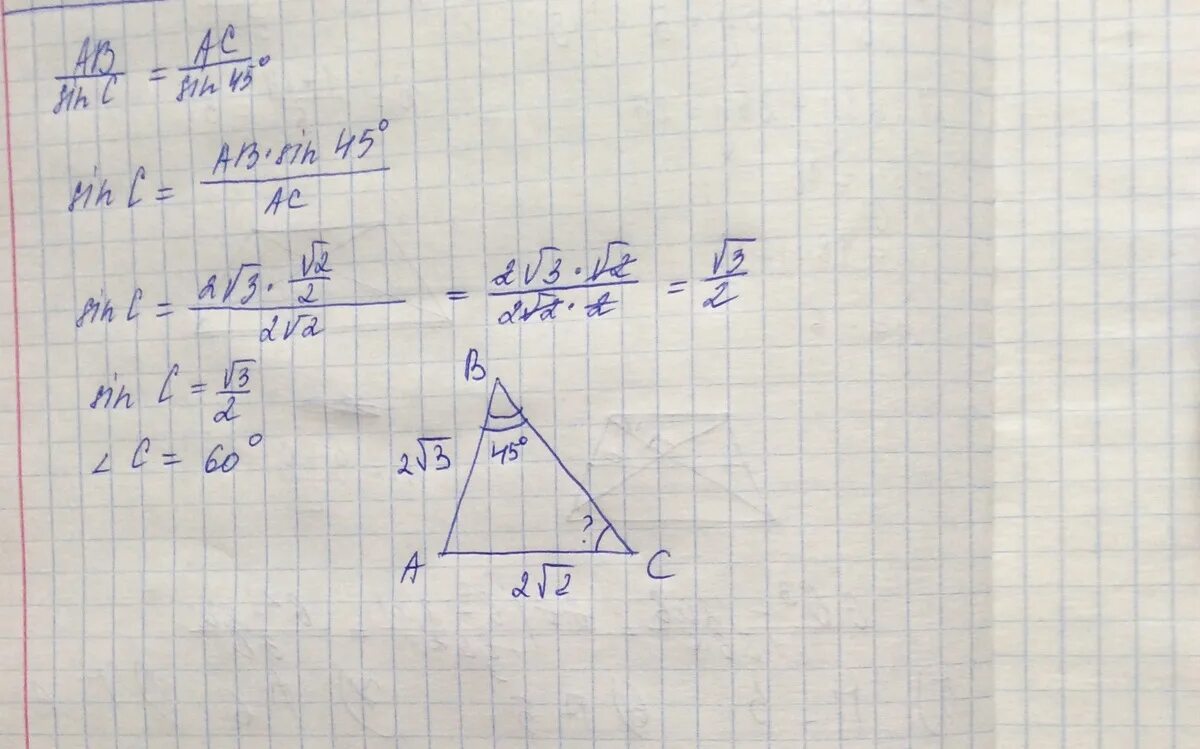 AB/sin C = AC/sin 45°
sin C = AB·sin 45°/AC
sin C = (2√3 · √2/2)/(2√2) = (2√3 · √2)/(2√2 · 2) = √3/2
sin C = √3/2
∠ C = 60°
B
2√3
45°
?
A
C
2√2